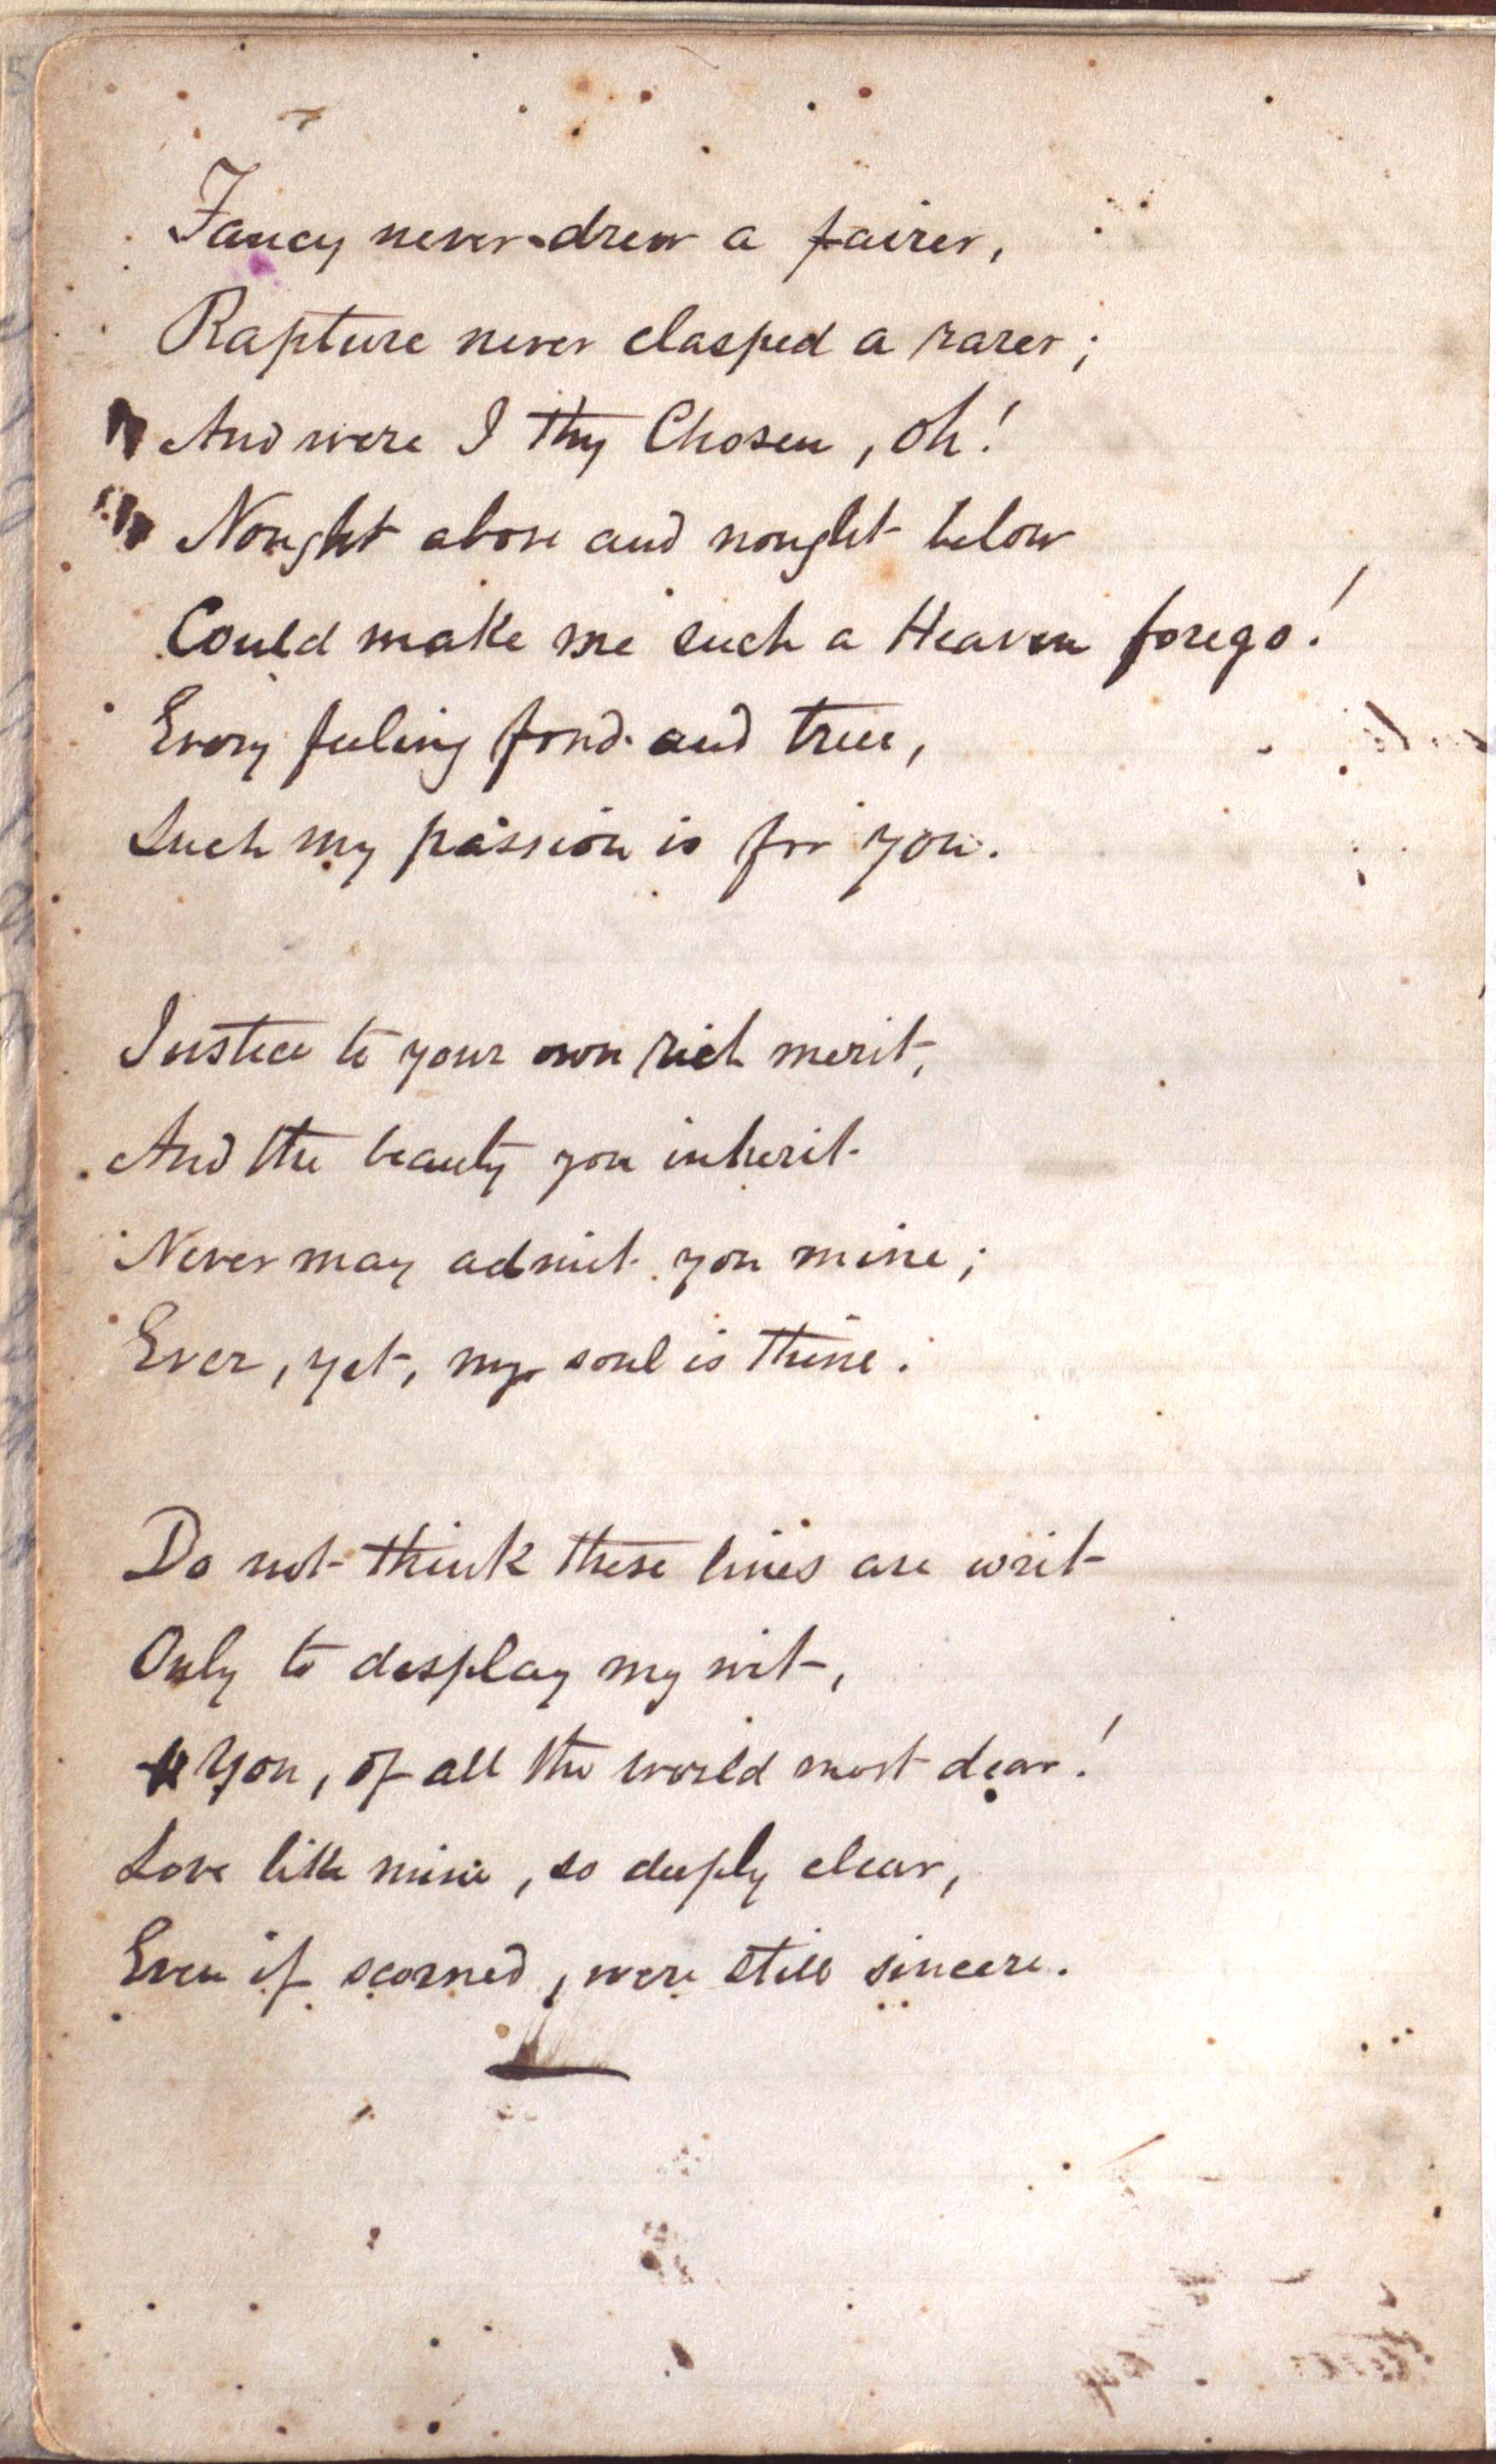 Fancy never drew a fairer,
Rapture never clasped a rarer;
And were I thy Chosen, oh!
Nought above and nought below
Could make me such a Heaven forego!
Every feeling fond and true,
Such my passion is for you.
Justice to your own rich merit,
And the beauty you inherit
Never may admit you mine;
Ever, yet, my soul is thine.
Do not think these lines are writ
Only to display my wit,
You, of all the world most dear!
Love like mine, so deeply clear,
Even if scorned, were still sincere.